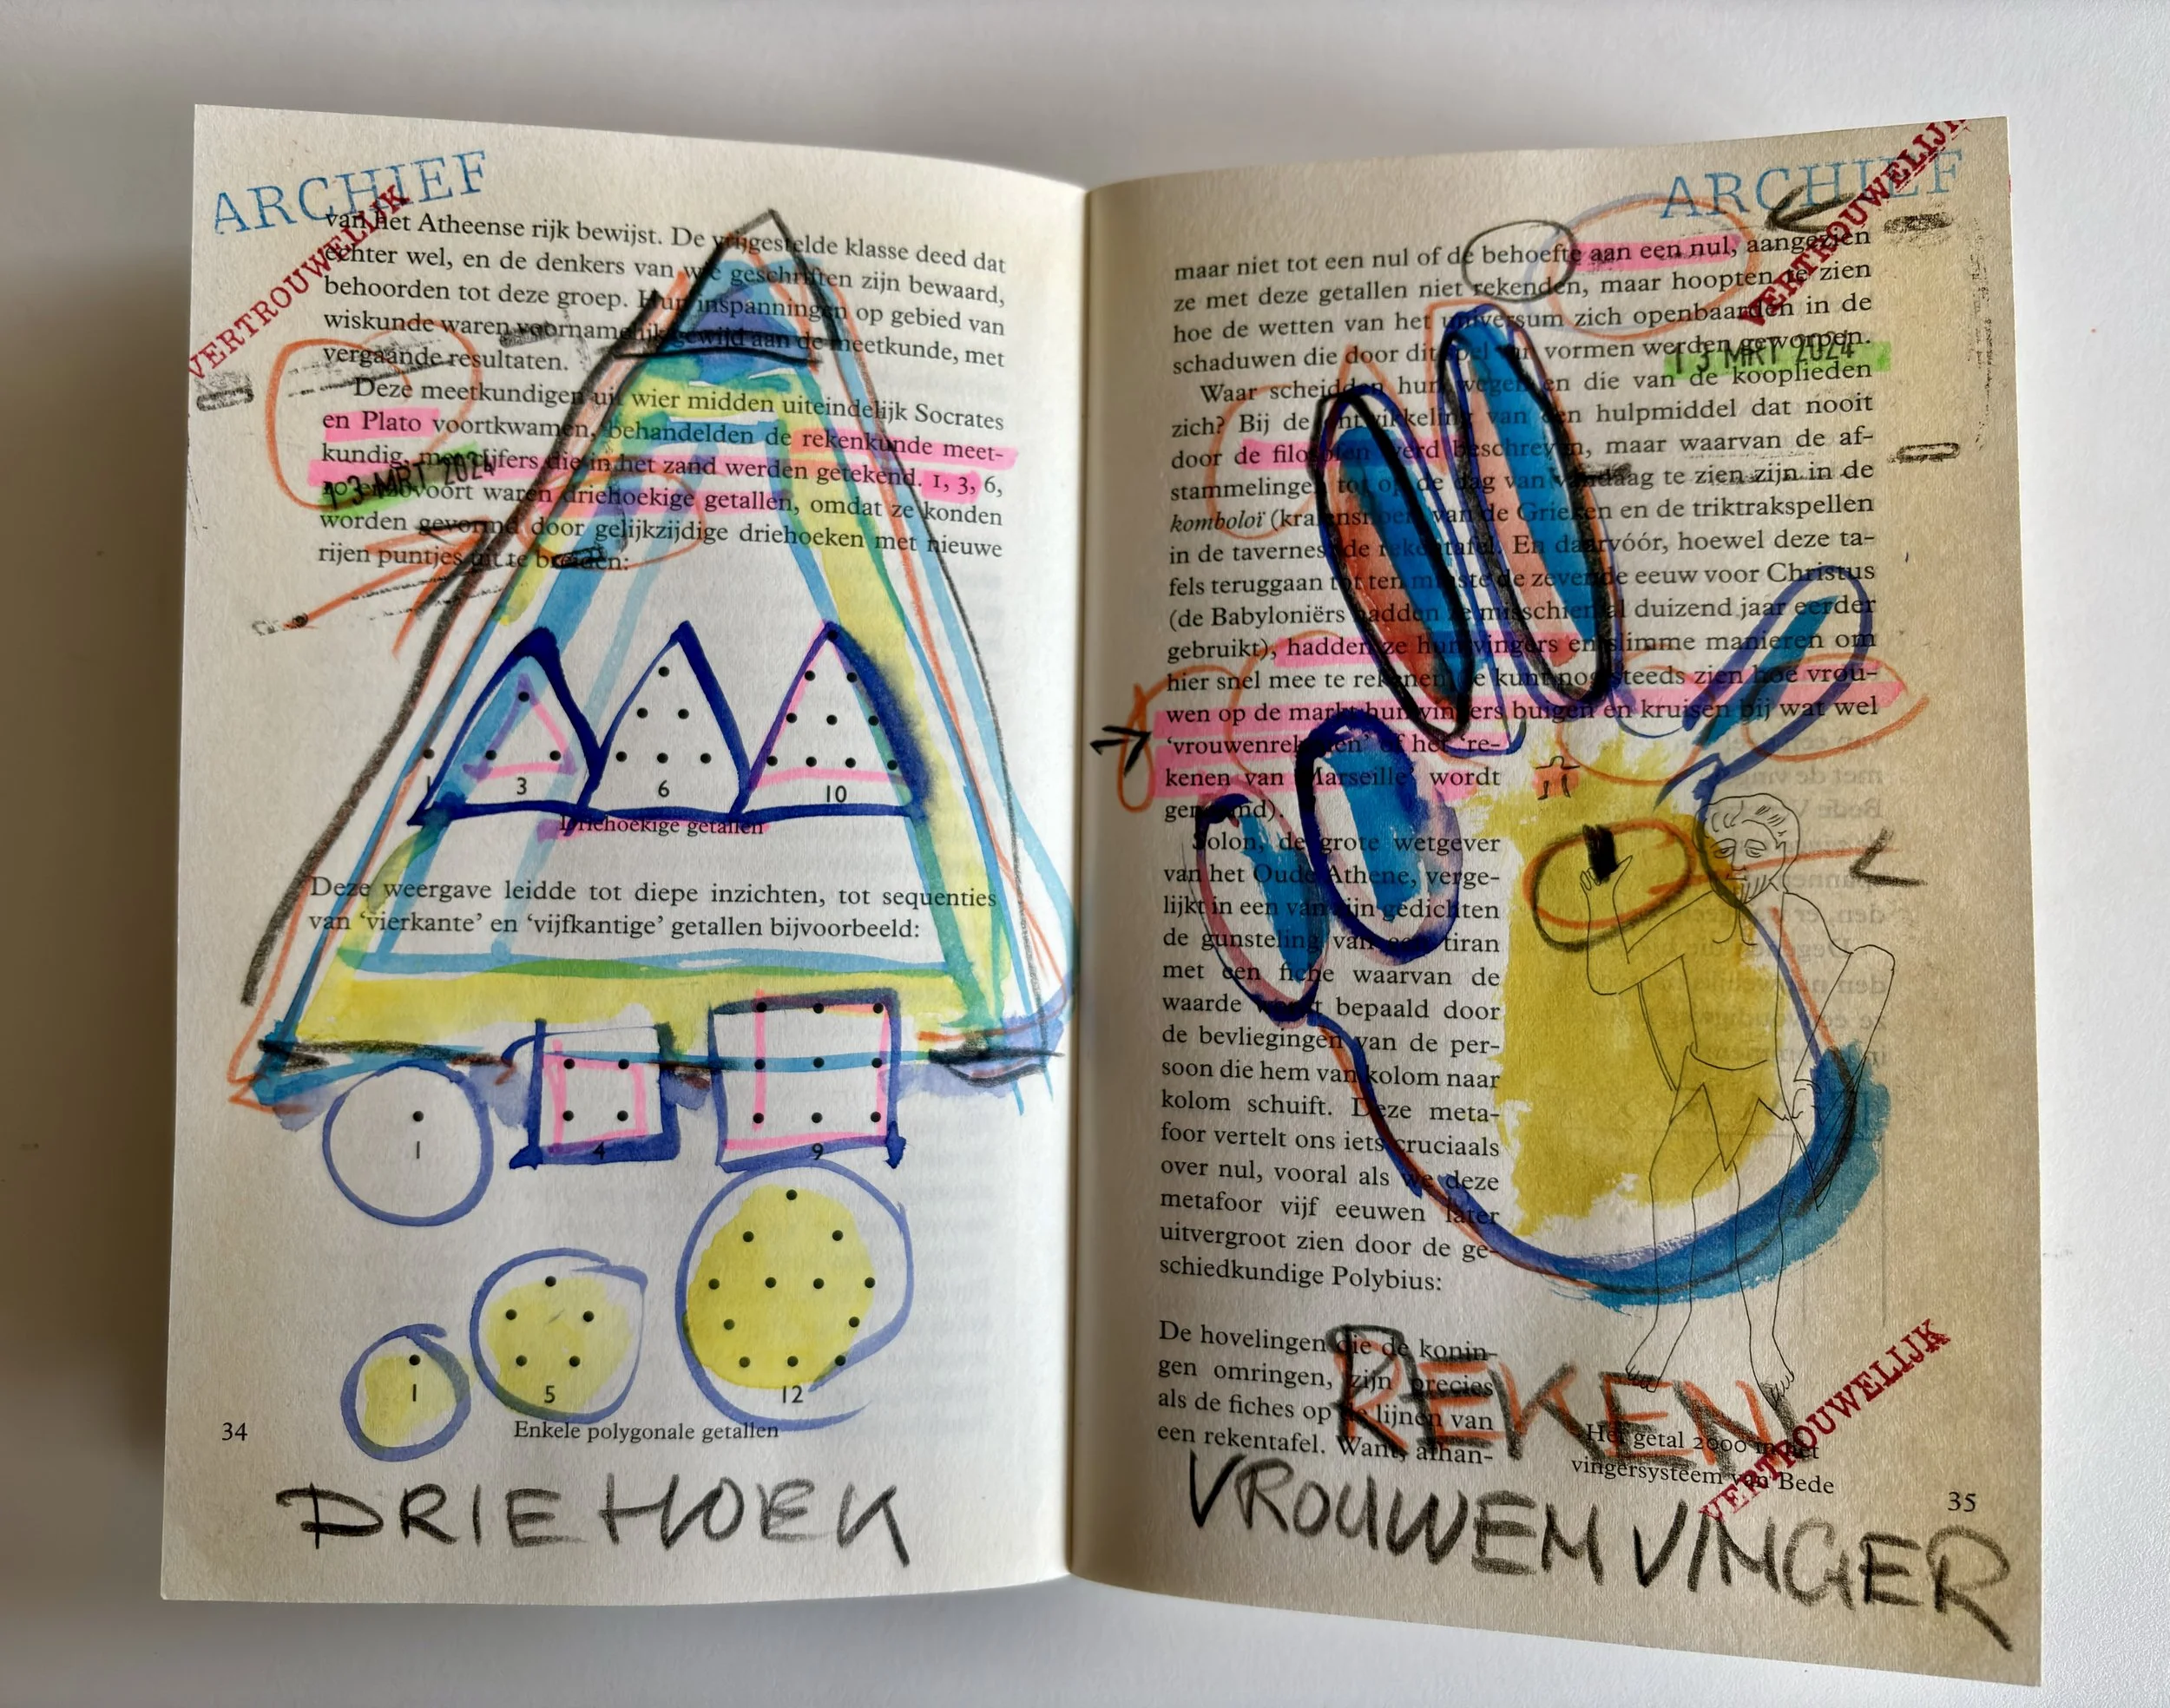 ARCHIEF
VERTROUWELIJK
van het Atheense rijk bewijst. De vrijgestelde klasse deed dat
echter wel, en de denkers van wie geschriften zijn bewaard,
behoorden tot deze groep. Hun inspanningen op gebied van
wiskunde waren voornamelijk gewijd aan de meetkunde, met
vergaande resultaten.
Deze meetkundigen uit wier midden uiteindelijk Socrates
en Plato voortkwamen, behandelden de rekenkunde meet-
kundig, met cijfers die in het zand werden getekend. 1, 3, 6,
10 enzovoort waren driehoekige getallen, omdat ze konden
13 MRT 2024
worden gevormd door gelijkzijdige driehoeken met nieuwe
rijen puntjes uit te breiden:
1 3 6 10
Driehoekige getallen
Deze weergave leidde tot diepe inzichten, tot sequenties
van ‘vierkante’ en ‘vijfkantige’ getallen bijvoorbeeld:
1 4 9
1 5 12
34
Enkele polygonale getallen
DRIEHOEK
ARCHIEF
VERTROUWELIJK
maar niet tot een nul of de behoefte aan een nul, aangezien
ze met deze getallen niet rekenden, maar hoopten te zien
hoe de wetten van het universum zich openbaarden in de
schaduwen die door dit spel van vormen werden geworpen.
13 MRT 2024
Waar scheidden hun wegen en die van de kooplieden
zich? Bij de ontwikkeling van een hulpmiddel dat nooit
door de filosofen werd beschreven, maar waarvan de af-
stammelingen tot op de dag van vandaag te zien zijn in de
komboloï (kralensnoer) van de Grieken en de triktrakspellen
in de tavernes: de rekentafel. En daarvóór, hoewel deze ta-
fels teruggaan tot ten minste de zevende eeuw voor Christus
(de Babyloniërs hadden ze misschien al duizend jaar eerder
gebruikt), hadden ze hun vingers en slimme manieren om
hier snel mee te rekenen (je kunt nog steeds zien hoe vrou-
wen op de markt hun vingers buigen en kruisen bij wat wel
‘vrouwenrekenen’ of het ‘re-
kenen van Marseille’ wordt
genoemd).
Solon, de grote wetgever
van het Oude Athene, verge-
lijkt in een van zijn gedichten
de gunsteling van een tiran
met een fiche waarvan de
waarde wordt bepaald door
de bevliegingen van de per-
soon die hem van kolom naar
kolom schuift. Deze meta-
foor vertelt ons iets cruciaals
over nul, vooral als we deze
metafoor vijf eeuwen later
uitvergroot zien door de ge-
schiedkundige Polybius:
De hovelingen die de konin-
gen omringen, zijn precies
als de fiches op de lijnen van
een rekentafel. Want, afhan-
REKEN
Het getal 2000 in het
vingersysteem van Bede
VERTROUWELIJK
35
VROUWEN VINGER